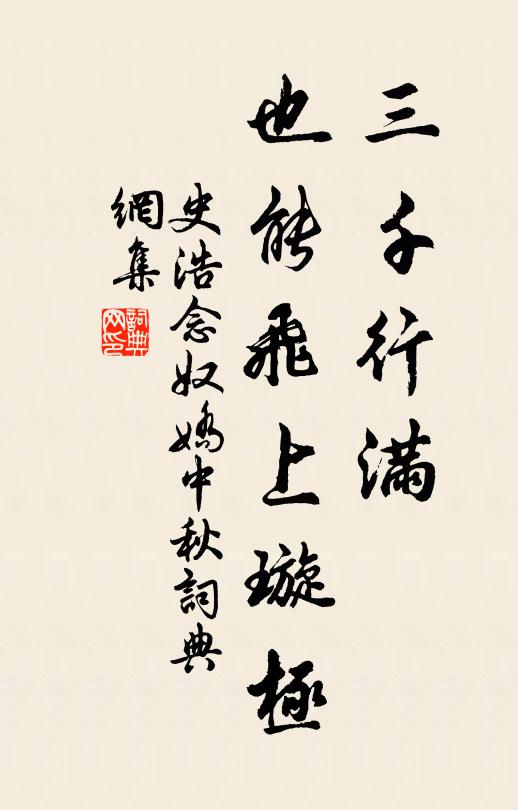 三千行满
也能飛上璇極
史浩念奴嬌中秋詞典
網集
詞典网印